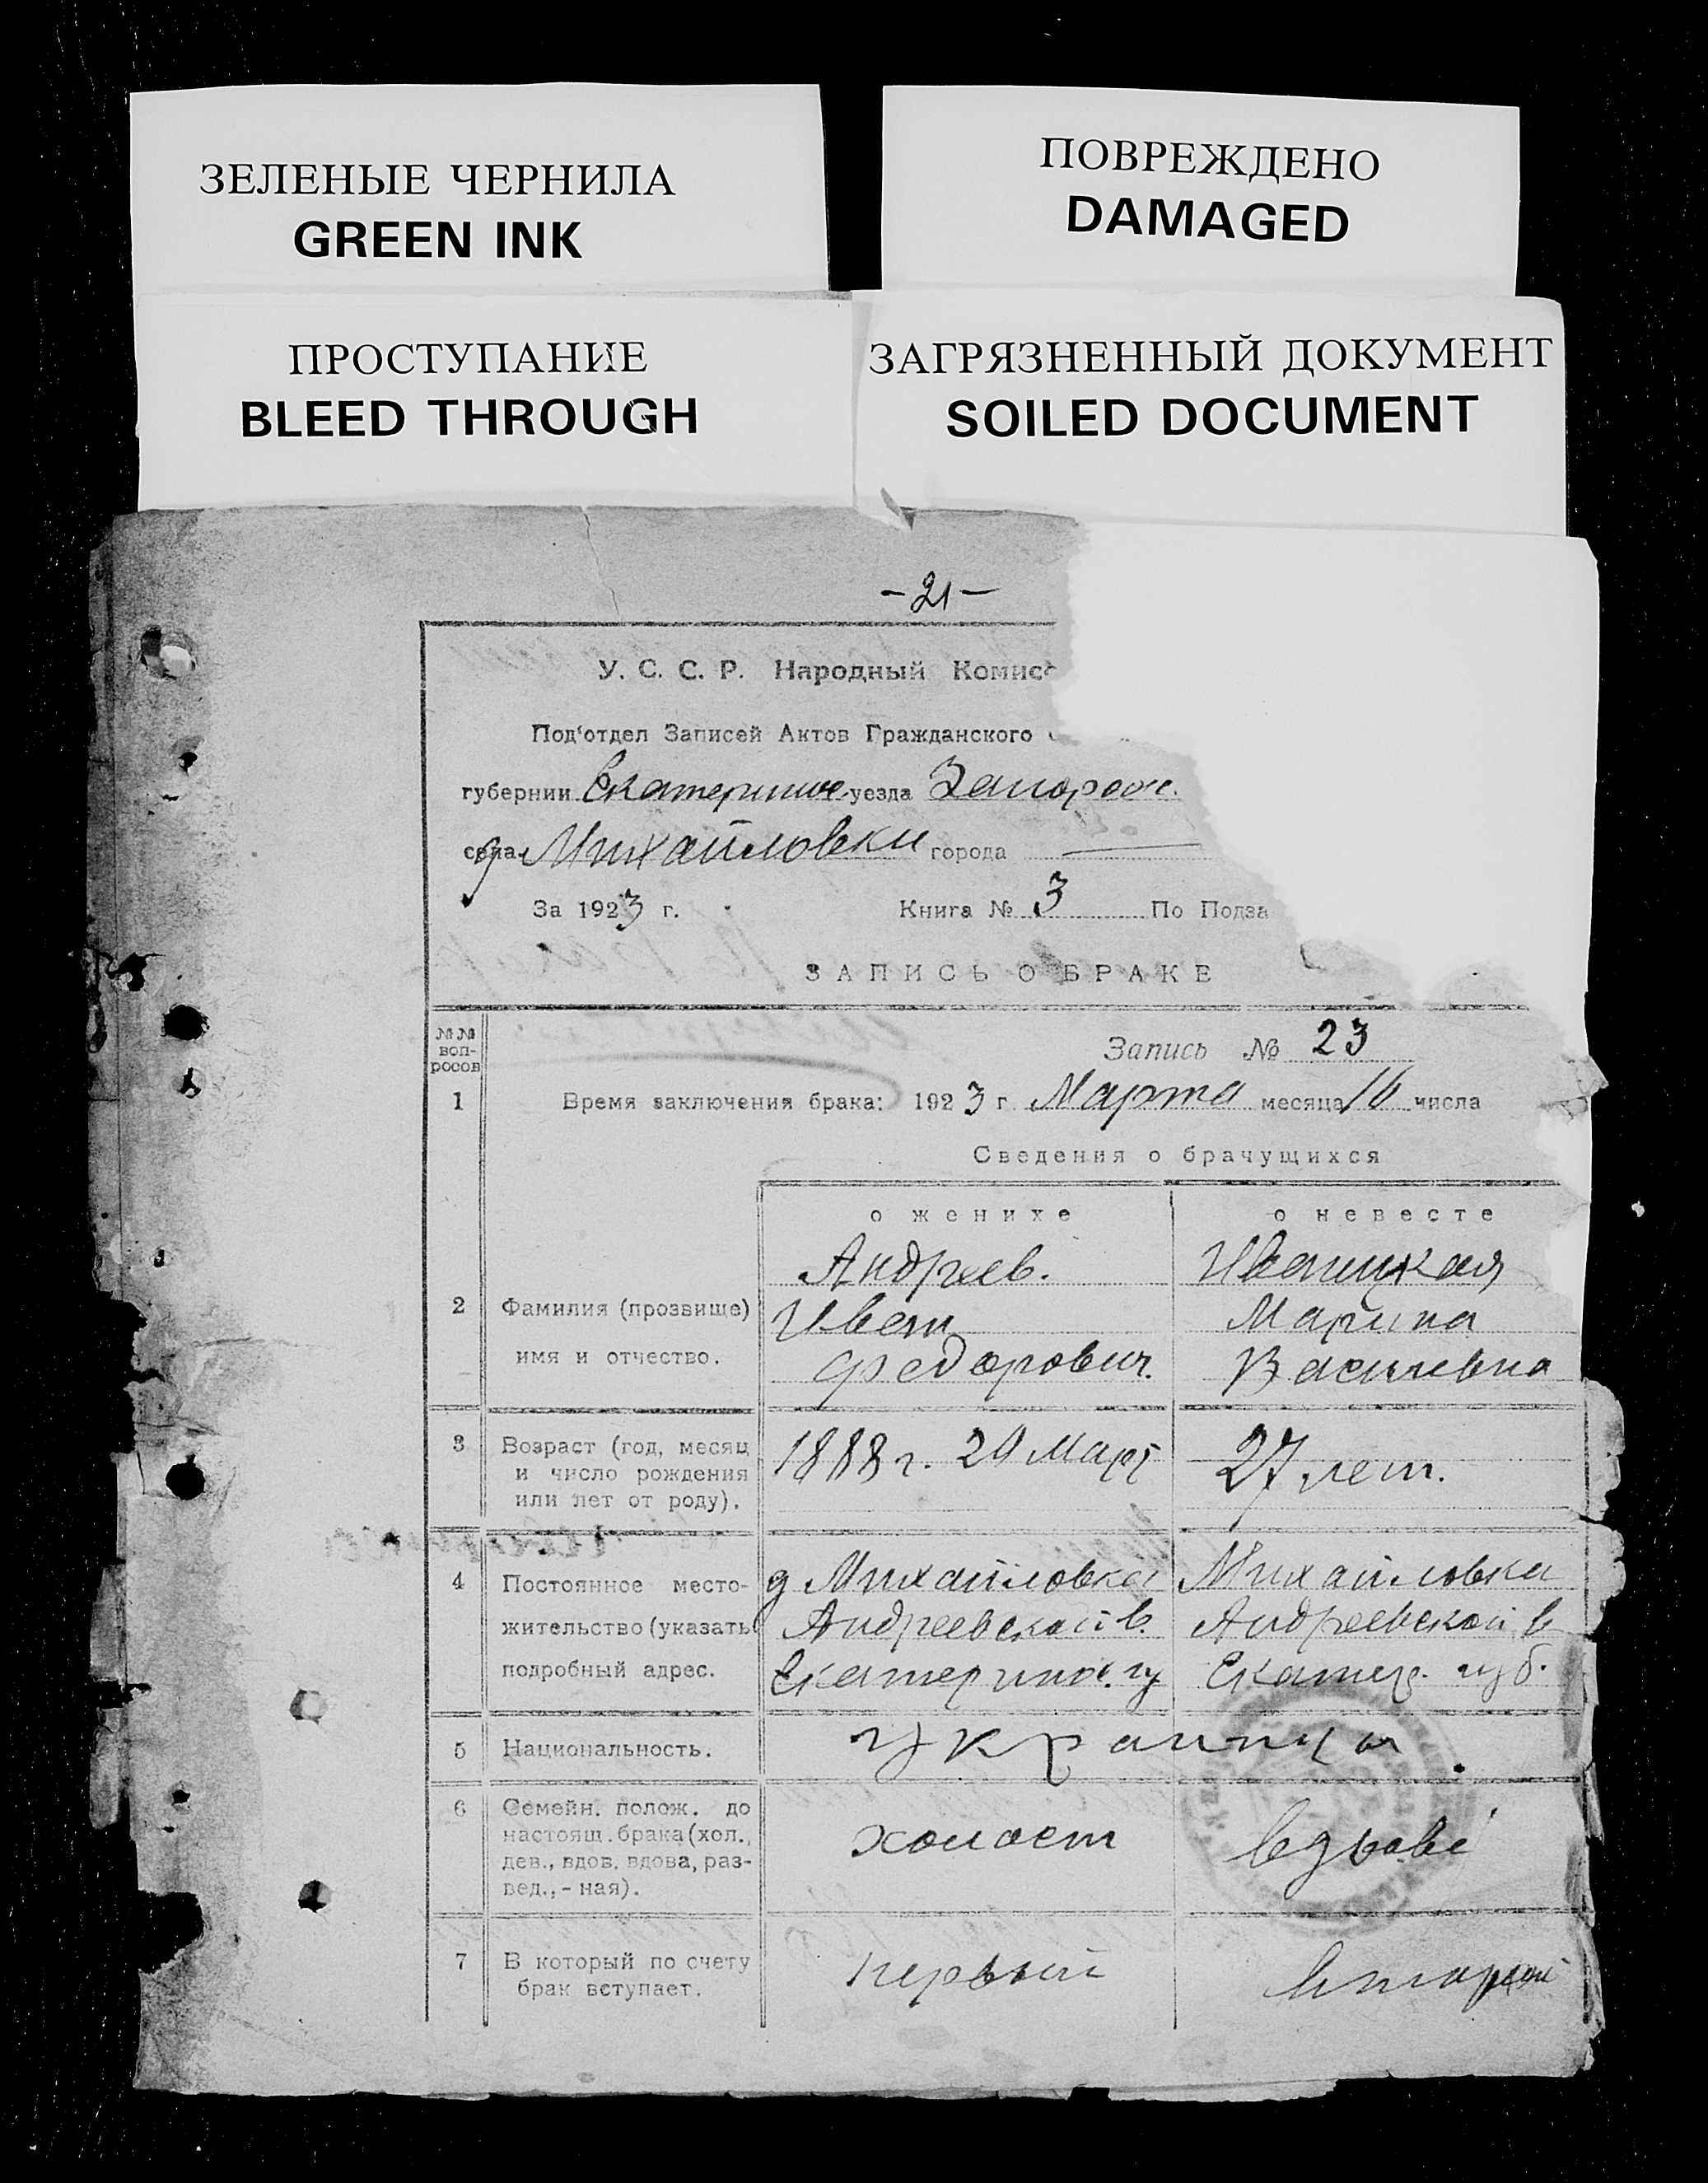 ЗЕЛЕНЫЕ ЧЕРНИЛА
GREEN INK
ПОВРЕЖДЕНО
DAMAGED
ПРОСТУПАНИЕ
BLEED THROUGH
ЗАГРЯЗНЕННЫЙ ДОКУМЕНТ
SOILED DOCUMENT
-21-
У. С. С. Р. Народный Комисс
Под'отдел Записей Актов Гражданского
губернии Екатеринос. уезда Запорож.
села д Михайловки города —
За 1923 г. Книга № 3 По Подза
ЗАПИСЬ О БРАКЕ
№№ воп-
росов
Запись № 23
1 Время заключения брака: 1923 г. Марта месяца 16 числа
Сведения о брачущихся
о женихе о невесте
Андреев. Иваницкая
2 Фамилия (прозвище) Ивan Марина
имя и отчество. Федорович. Васильевна
3 Возраст (год, месяц 1888 г. 20 Март 27 лет.
и число рождения
или лет от роду).
4 Постоянное место- д Михайловка Михайловка
жительство (указать Андреевской в. Андреевской в
подробный адрес. Екатеринос. гу Екатер. губ.
5 Национальность. Украинцы.
6 Семейн. полож. до холост вдова
настоящ. брака (хол.,
дев., вдов. вдова, раз-
вед., - ная).
7 В который по счету первый второй
брак вступает.